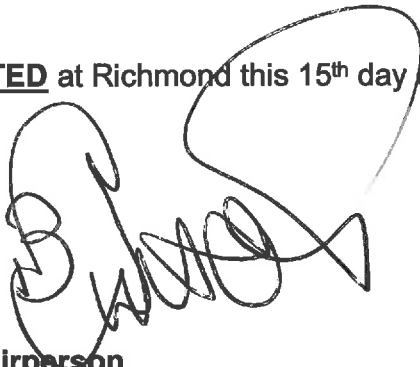 TED at Richmond this 15th day
irperson